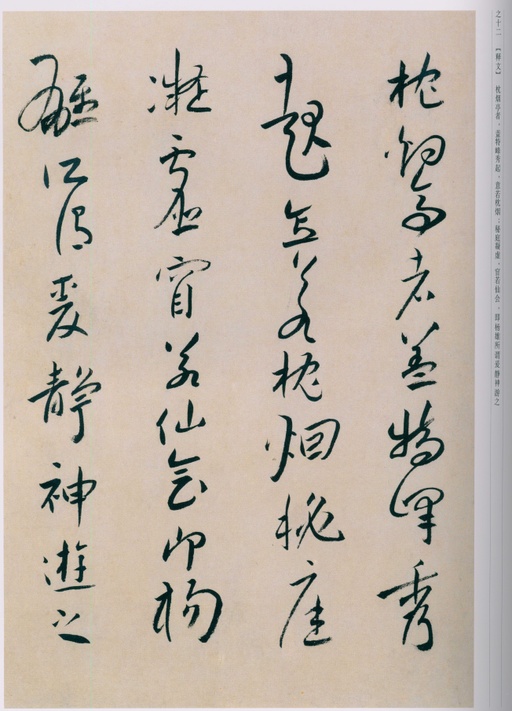 之十二 【释文】 枕烟亭者，盖特峰秀起，意若枕烟；秘庭凝虚，窅若仙会，即杨雄所谓爰静神游之
枕煙亭者蓋特峯秀
起意若枕烟秘庭
凝虛窅若仙會即楊
雄所謂爰靜神遊之